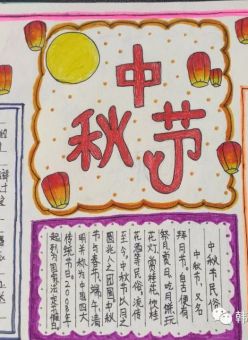 中
秋节
中秋节民俗
中秋节，又名
拜月节。自古便有
祭月赏月、吃月饼玩
花灯、赏桂花、饮桂
花酒等民俗，流传
至今。中秋节以月之
圆兆人之团圆。中秋
节与春节、端午、清
明并称为中国四大
传统节日。2008年
起列为国家法定节假日。
韩